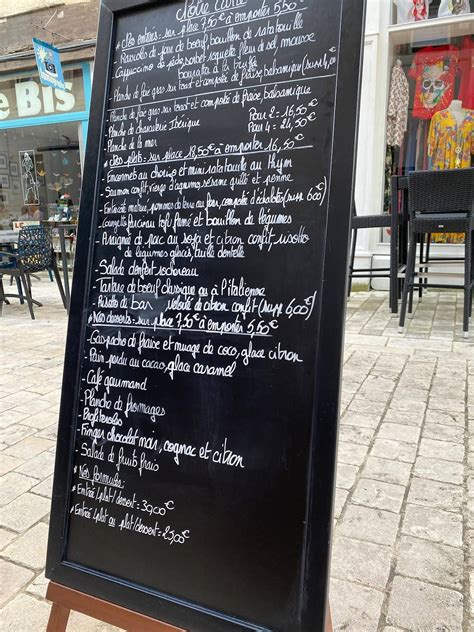 Notre Carte
* Nos entrées = sur place 7,50€ à emporter 5,50
- Raviole de joue de boeuf, bouillon de ratatouille
- Cappuccino de sorbet roquette, fleur de sel, mousse
burrata à la truffe
- Planche de foie gras sur toast et compotée de fraise, balsamique (supp 4,00€
- Planche de foie gras sur toast et compotée de fraise, balsamique
- Planche de charcuterie Ibérique Pour 2 = 16,50€
- Planche de la mer Pour 4 = 24,50€
* Nos plats = sur place 18,50€ à emporter 16,50
- Encornet au chorizo et mini ratatouille au thym
- Saumon confit, vierge d'agrumes, sésame grillé et penne
- Entrecôte maturée, pommes de terre au four, compotée d'échalotes (supp 6,00)
- Courgette farcie au tofu fumé et bouillon de légumes
- Araignée de porc au soja et citron confit, risotto
de légumes glacés, tuile dentelle
- Salade d'enfert rochereau
- Tartare de boeuf classique ou à l'italienne
- Risotto de bar velouté de citron confit (supp 5,00€)
* Nos desserts = sur place 7,50€ à emporter 5,50
- Gaspacho de fraise et nuage de coco, glace citron
- Pain perdu au cacao, glace caramel
- Café gourmand
- Planche de fromages
- Profiteroles
- Finger chocolat noir, cognac et citron
- Salade de fruits frais
* Nos formules :
* Entrée/plat/dessert = 30,00€
* Entrée/plat ou plat/dessert = 25,00€
e BIS